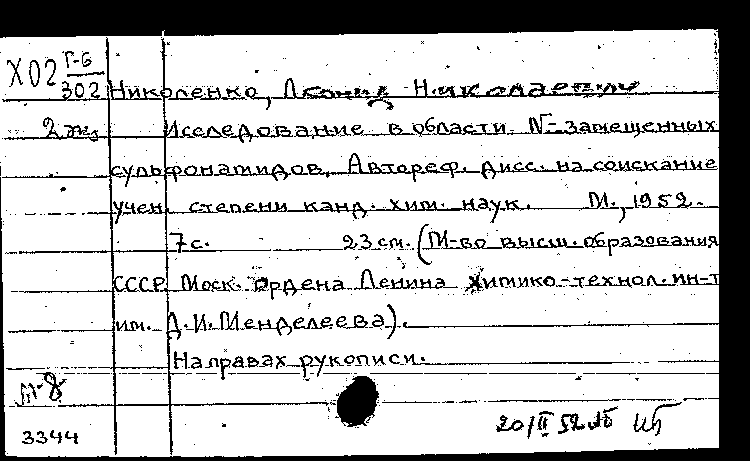 X02 Г-6/302
Николенко, Леонид Николаевич
2 экз. Исследование в области N-замещенных
сульфонамидов. Автореф. дисс. на соискание
учен. степени канд. хим. наук. М., 1952.
7 с. 23 см. (М-во высш. образования
СССР. Моск. ордена Ленина химико-технол. ин-т
им. Д. И. Менделеева).
На правах рукописи.
М-8
3344 20/II 52